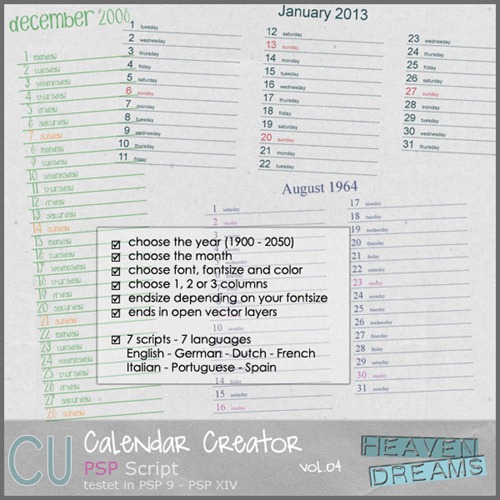 december 2008
1 monday
2 tuesday
3 wednesday
4 thursday
5 friday
6 saturday
7 sunday
8 monday
9 tuesday
10 wednesday
11 thursday
12 friday
13 saturday
14 sunday
15 monday
16 tuesday
17 wednesday
18 thursday
19 friday
20 saturday
21 sunday
22 monday
23 tuesday
24 wednesday
25 thursday
26 friday
27 saturday
28 sunday
January 2013
1 tuesday
2 wednesday
3 thursday
4 friday
5 saturday
6 sunday
7 monday
8 tuesday
9 wednesday
10 thursday
11 friday
12 saturday
13 sunday
14 monday
15 tuesday
16 wednesday
17 thursday
18 friday
19 saturday
20 sunday
21 monday
22 tuesday
23 wednesday
24 thursday
25 friday
26 saturday
27 sunday
28 monday
29 tuesday
30 wednesday
31 thursday
August 1964
1 saturday
2 sunday
10 monday
14 friday
15 saturday
16 sunday
17 monday
18 tuesday
19 wednesday
20 thursday
21 friday
22 saturday
23 sunday
24 monday
25 tuesday
26 wednesday
27 thursday
28 friday
29 saturday
30 sunday
31 monday
choose the year (1900 - 2050)
choose the month
choose font, fontsize and color
choose 1, 2 or 3 columns
endsize depending on your fontsize
ends in open vector layers
7 scripts - 7 languages
English - German - Dutch - French
Italian - Portuguese - Spain
CU Calendar Creator
PSP Script
testet in PSP 9 - PSP XIV
vol.04
HEAVEN
DREAMS